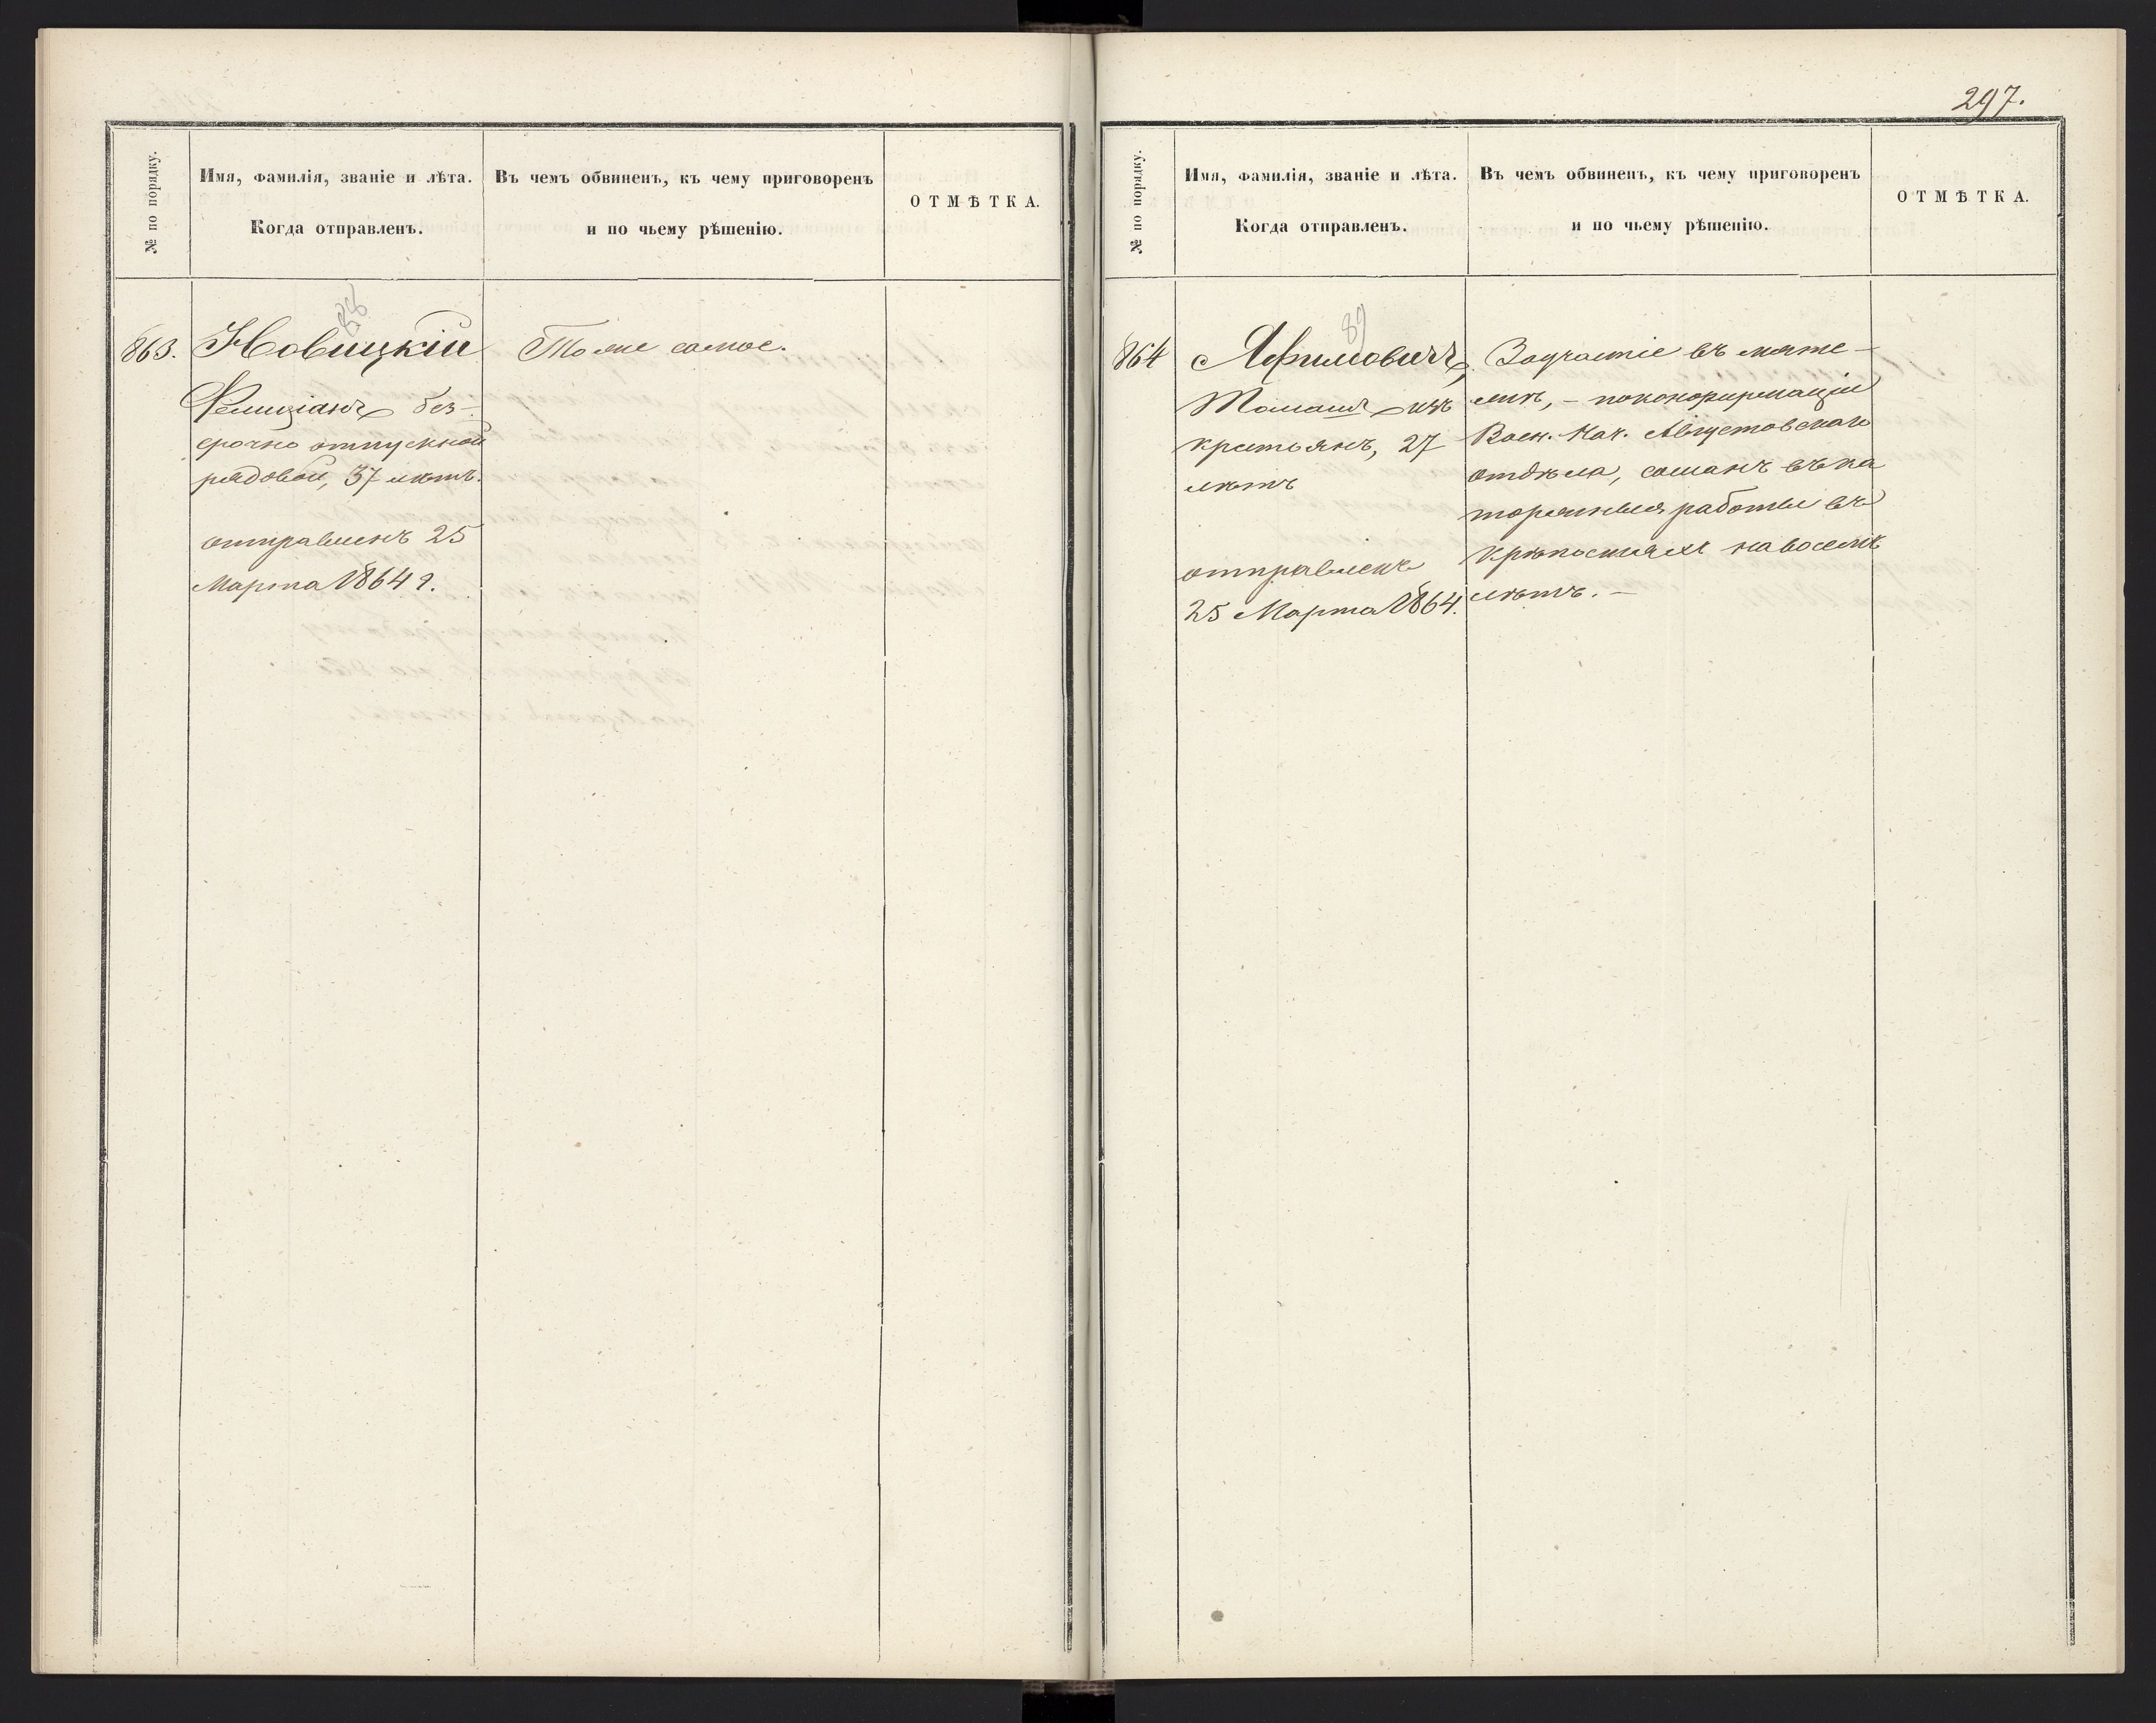 № по порядку.
Имя, фамилія, званіе и лѣта.
Когда отправленъ.
Въ чемъ обвиненъ, къ чему приговоренъ
и по чьему рѣшенію.
ОТМѢТКА.
88
863.
Новицкій
Фелиціанъ без-
срочно отпускной
рядовой, 37 лѣтъ.
отправленъ 25
Марта 1864 г.
Тоже самое.
297.
№ по порядку.
Имя, фамилія, званіе и лѣта.
Когда отправленъ.
Въ чемъ обвиненъ, къ чему приговоренъ
и по чьему рѣшенію.
ОТМѢТКА.
89
864
Томашъ изъ
крестьянъ, 27
лѣтъ
отправленъ
25 Марта 1864.
За участіе въ мяте-
жѣ, - по конфирмаціи
Воен. Нач. Августовскаго
отдѣла, сосланъ въ ка
торжныя работы въ
крѣпостяхъ на восемь
лѣтъ. -